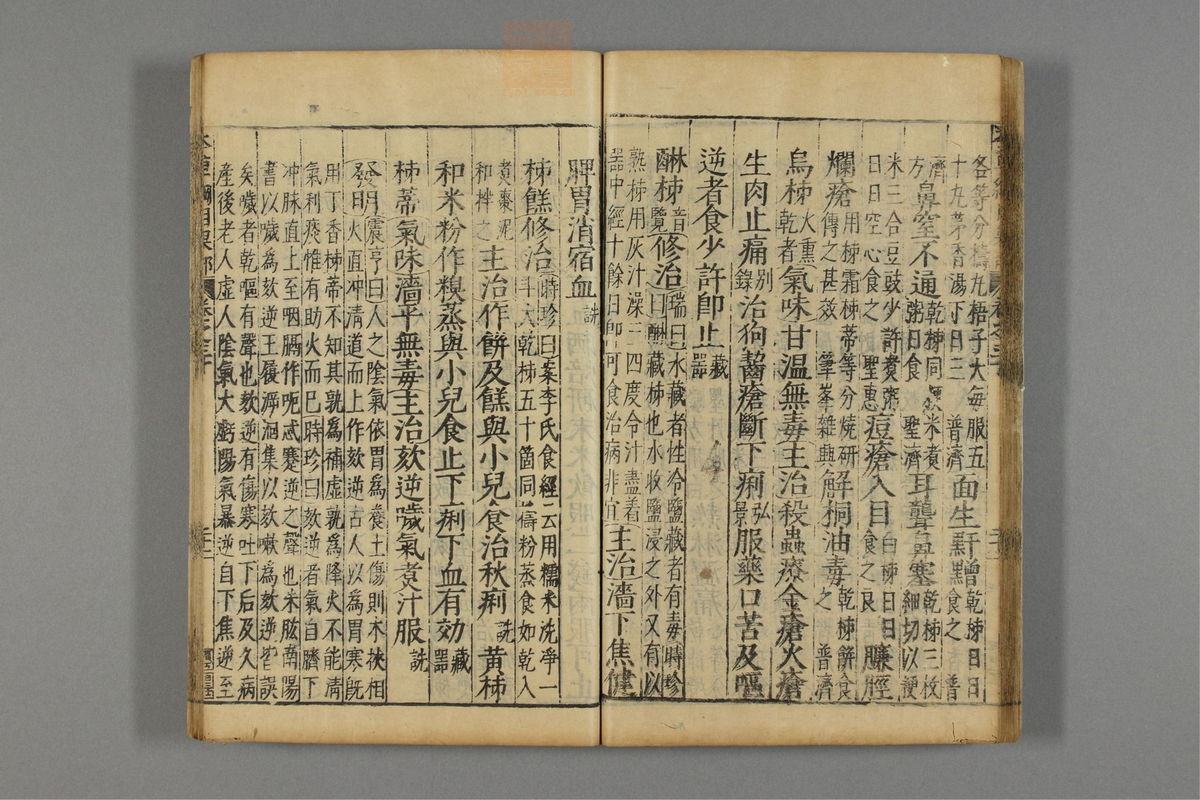 各等分擣丸梧子大每服五十九茅香湯下日三普濟面生乾柿日日食之普
濟方鼻窒不通乾柿同粳米煮粥日食聖濟耳聾鼻塞乾柿三枚細切以粳
米三合豆豉少許煮粥日日空心食之聖惠痘瘡入目白柿日日食之良臁脛
爛瘡用柿霜柿蒂等分燒研傅之甚效筆峯雜興解桐油毒乾柿餅食之普濟
烏柿火熏乾者氣味甘溫無毒主治殺蟲療金瘡火瘡
生肉止痛別錄治狗齧瘡斷下痢弘景服藥口苦及嘔
逆者食少許卽止藏器
醂柿音覽修治瑞曰水藏者性冷鹽藏者有毒時珍曰醂藏柿也水收鹽浸之外又有以
熟柿用灰汁澡三四度令汁盡着器中經十餘日卽可食治病非宜主治濇下焦健
脾胃消宿血詵
柿餻修治時珍曰案李氏食經云用糯米洗淨一斗大乾柿五十箇同擣粉蒸食如乾入
煮棗泥和拌之主治作餅及餻與小兒食治秋痢詵黃柿
和米粉作糗蒸與小兒食止下痢下血有効藏器
柿蒂氣味濇平無毒主治欬逆噦氣煮汁服詵
發明震亨曰人之陰氣依胃爲養土傷則木挾相火直冲清道而上作欬逆古人以爲胃寒旣
用丁香柿蒂不知其孰爲補虛孰爲降火不能清氣利痰惟有助火而已時珍曰欬逆者氣自臍下
冲脉直上至咽膈作呃忒蹇逆之聲也朱肱南陽書以噦爲欬逆王履溯洄集以欬嗽爲欬逆皆誤
矣噦者乾嘔有聲也欬逆有傷寒吐下后及久病產後老人虛人陰氣大虧陽氣暴逆自下焦逆至